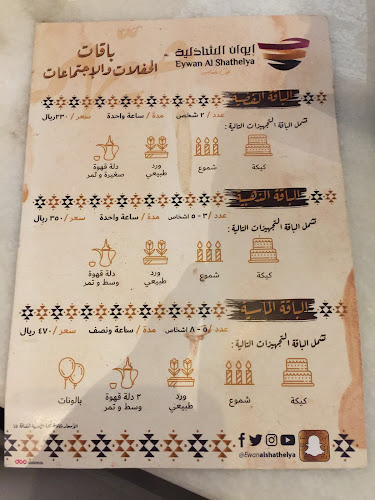 ايوان الشاذلية
Eywan Al Shathelya
باقات
الحفلات والإجتماعات
الباقة الفضية
عدد / ٢ شخص مدة / ساعة واحدة سعر / ٢٣٠ريال
تشمل الباقة التجهيزات التالية :
كيكة
شموع
ورد
طبيعي
دلة قهوة
صغيرة و تمر
الباقة الذهبية
عدد / ٣ - ٥ اشخاص مدة / ساعة واحدة سعر / ٣٥٠ ريال
تشمل الباقة التجهيزات التالية :
كيكة
شموع
ورد
طبيعي
دلة قهوة
وسط و تمر
الباقة الماسية
عدد / ٥ - ٨ اشخاص مدة / ساعة ونصف سعر / ٤٧٠ ريال
تشمل الباقة التجهيزات التالية :
كيكة
شموع
ورد
طبيعي
٣ دلة قهوة
وسط و تمر
بالونات
@Ewanalshathelya